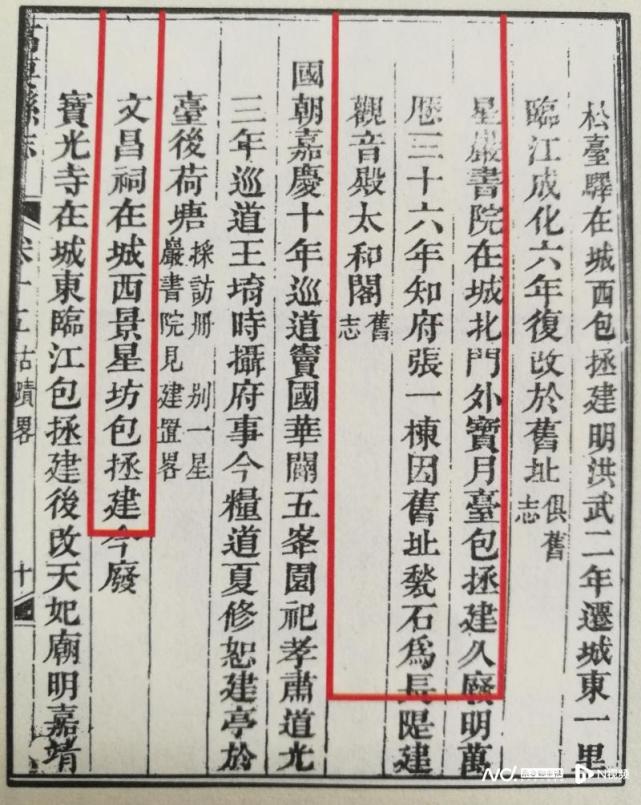 松臺驛在城西包拯建明洪武二年遷城東一里
臨江成化六年復改於舊址俱舊志
星巖書院在城北門外寶月臺包拯建久廢明萬
厯三十六年知府張一棟因舊址甃石爲長隄建
觀音殿太和閣舊志
國朝嘉慶十年巡道竇國華闢五峯園祀孝肅道光
三年巡道王堉時攝府事今糧道夏修恕建亭於
臺後荷塘採訪册 别一星巖書院見建置畧
文昌祠在城西景星坊包拯建今廢
寶光寺在城東臨江包拯建後改天妃廟明嘉靖
高要縣志
卷十五 古蹟畧
十
N視頻